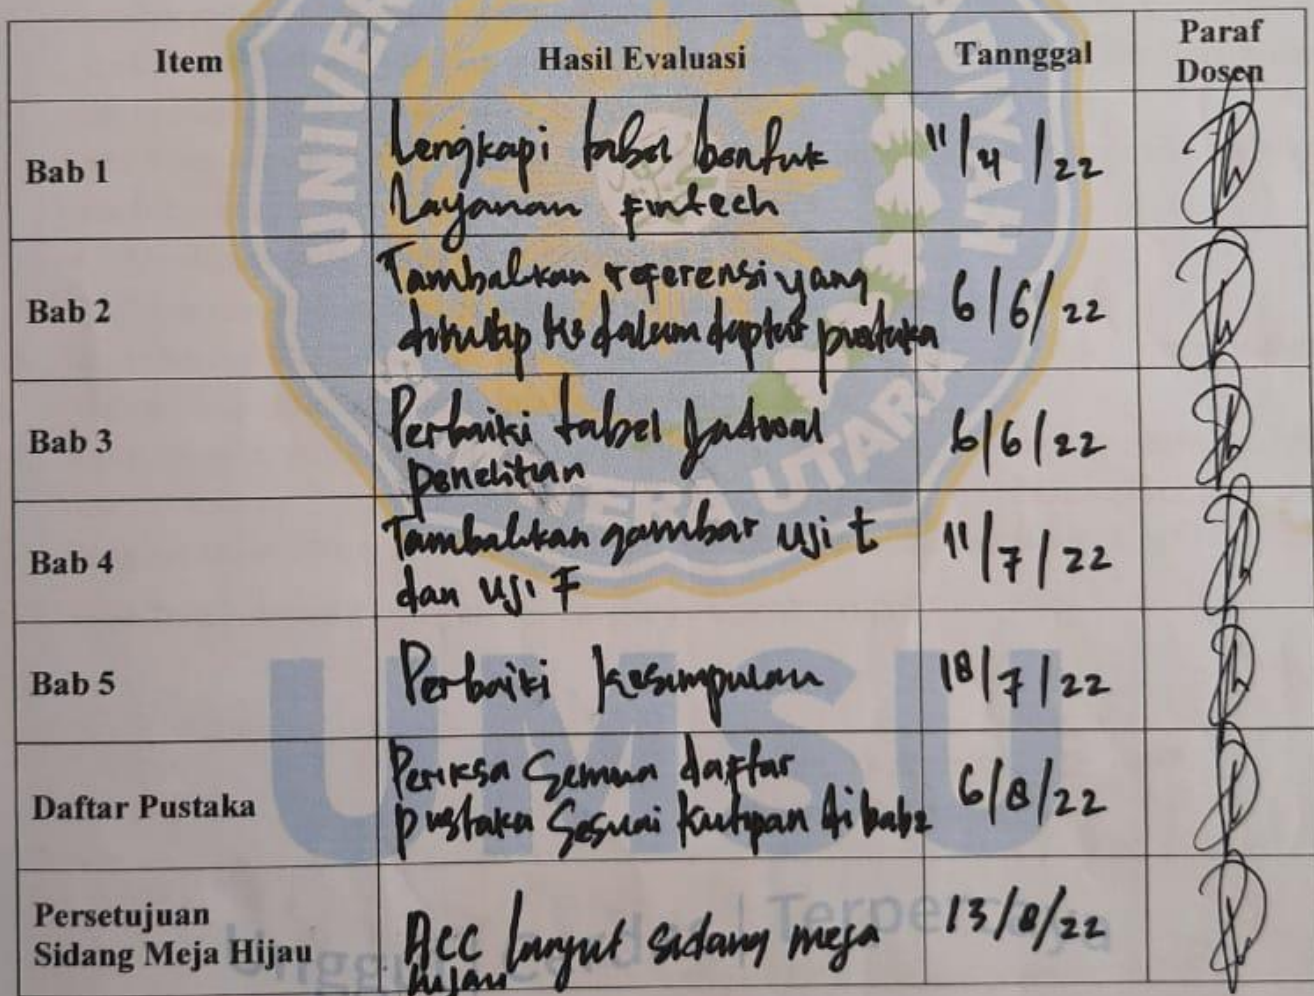 Item Hasil Evaluasi Tannggal Paraf
Dosen
Bab 1 Lengkapi tabel bentuk 11/4/22
Layanan Fintech
Bab 2 Tambahkan referensi yang 6/6/22
dikutip ke dalam daptar pustaka
Bab 3 Perbaiki tabel Jadwal 6/6/22
penelitian
Bab 4 Tambahkan gambar uji t 11/7/22
dan uji F
Bab 5 Perbaiki kesimpulan 18/7/22
Daftar Pustaka Periksa Semua daftar 6/8/22
pustaka Sesuai kutipan di bab 2
Persetujuan
Sidang Meja Hijau ACC lanjut sidang meja 13/8/22
hijau
UMSU
SUMATERA UTARA